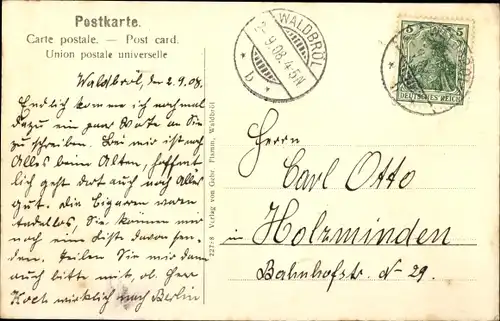 Postkarte.
Carte postale. — Post card.
Union postale universelle
WALDBRÖL
2.9.08. 4-5N
* b *
5 5
DEUTSCHES REICH
Waldbröl, den 2.9.08.
Endlich komme ich nochmal
dazu ein paar Worte an Sie
zu schreiben. Bei mir ist noch
Alles beim Alten, hoffent
lich geht dort auch noch Alles
gut. Die Cigarren waren
tadellos, Sie können mir
noch eine Kiste davon sen-
den. Teilen Sie mir dann
auch bitte mit, ob Herr
Koch wirklich nach Berlin
72778 Verlag von Gebr. Flamm, Waldbröl
Herrn
Carl Otto
in Holzminden
Bahnhofstr. N- 29.